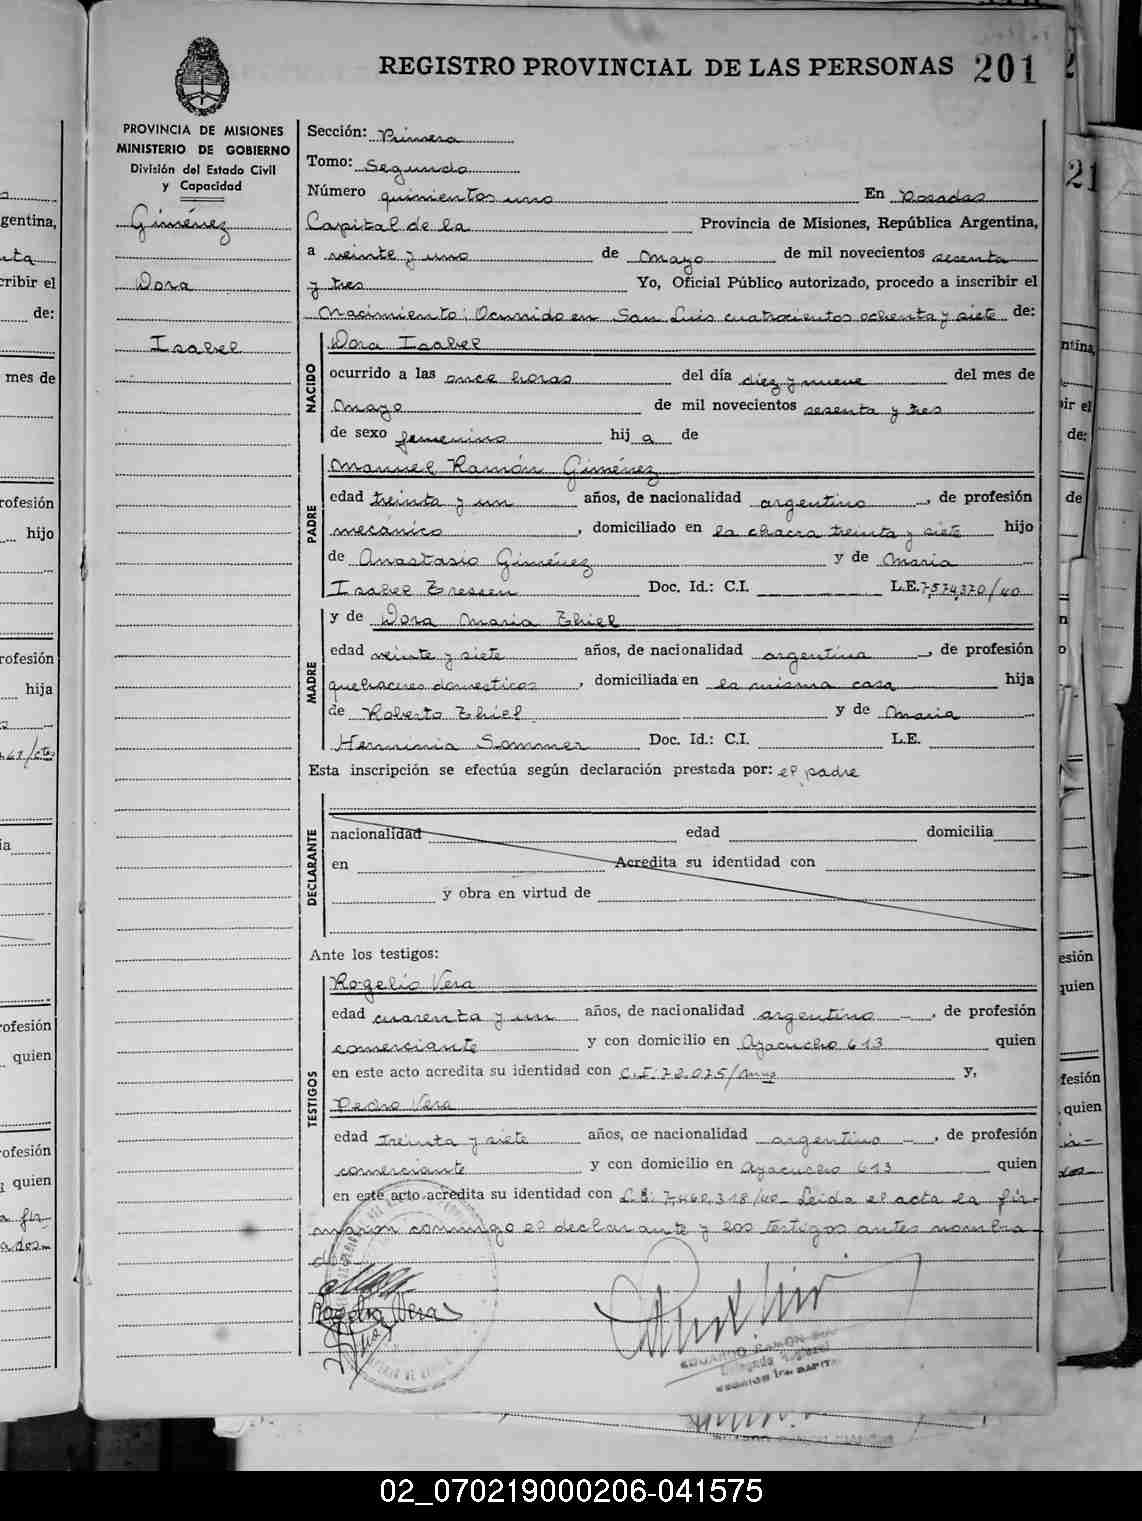 REGISTRO PROVINCIAL DE LAS PERSONAS 201
PROVINCIA DE MISIONES
MINISTERIO DE GOBIERNO
División del Estado Civil
y Capacidad
Giménez
Dora
Isabel
Sección: Primera
Tomo: Segundo
Número quinientos uno En Posadas
Capital de la Provincia de Misiones, República Argentina,
a veinte y uno de Mayo de mil novecientos sesenta
y tres Yo, Oficial Público autorizado, procedo a inscribir el
Nacimiento; Ocurrido en San Luis cuatrocientos ochenta y siete de:
NACIDO
Dora Isabel
ocurrido a las once horas del día diez y nueve del mes de
Mayo de mil novecientos sesenta y tres
de sexo femenino hij a de
PADRE
Manuel Ramón Giménez
edad treinta y un años, de nacionalidad argentino, de profesión
mecánico, domiciliado en la chacra treinta y siete hijo
de Anastasio Giménez y de Maria
Isabel Doc. Id.: C.I. L.E. 7,574,370/40
MADRE
y de Dora Maria Thiel
edad veinte y siete años, de nacionalidad argentina, de profesión
quehaceres domesticos, domiciliada en la misma casa hija
de Roberto Thiel y de Maria
Herminia Sommer Doc. Id.: C.I. L.E.
Esta inscripción se efectúa según declaración prestada por: el padre
DECLARANTE
nacionalidad edad domicilia
en Acredita su identidad con
y obra en virtud de
Ante los testigos:
TESTIGOS
Rogelio Vera
edad cuarenta y un años, de nacionalidad argentino -, de profesión
comerciante y con domicilio en Ayacucho 613 quien
en este acto acredita su identidad con C.I: 72.075/mnes y,
Pedro Vera
edad treinta y siete años, de nacionalidad argentino -, de profesión
comerciante y con domicilio en Ayacucho 613 quien
en este acto acredita su identidad con L.E: 7,460,318/40- Leida el acta la fir-
maron conmigo el declarante y los testigos antes nombra
dos
Rogelio Vera
EDUARDO RAMON
Delegado
02_070219000206-041575